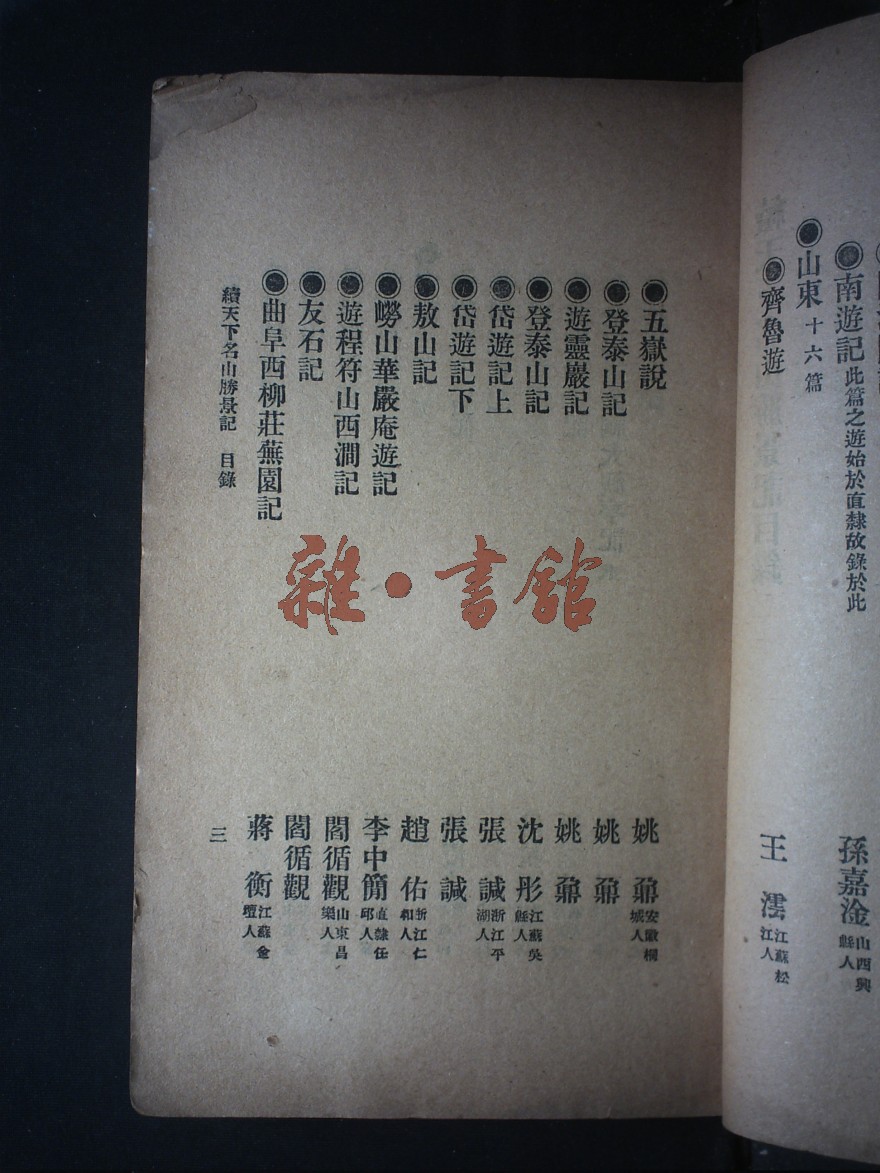 南遊記 此篇之遊始於直隸故錄於此 孫嘉淦 山西興縣人
山東 十六篇
齊魯遊 王澐 江蘇松江人
五嶽說 姚鼐 安徽桐城人
登泰山記 姚鼐
遊靈巖記 姚鼐
登泰山記 沈彤 江蘇吳縣人
岱遊記上 張誠 浙江平湖人
岱遊記下 張誠
敖山記 趙佑 浙江仁和人
嶗山華嚴庵遊記 李中簡 直隸任邱人
遊程符山西澗記 閻循觀 山東昌樂人
友石記 閻循觀
曲阜西柳莊蕪園記 蔣衡 江蘇金壇人
續天下名山勝景記 目錄 三
雜·書館